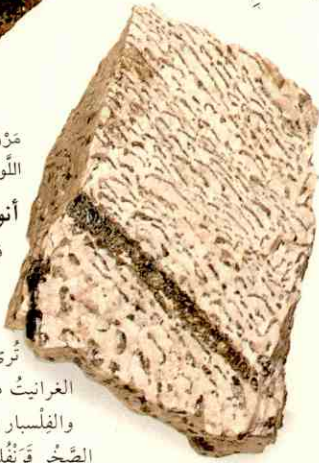 اللَّو
أنو
تُرى
الغرانيتُ
والفِلْسبار
الصَّخْرِ قَرَنْفُل